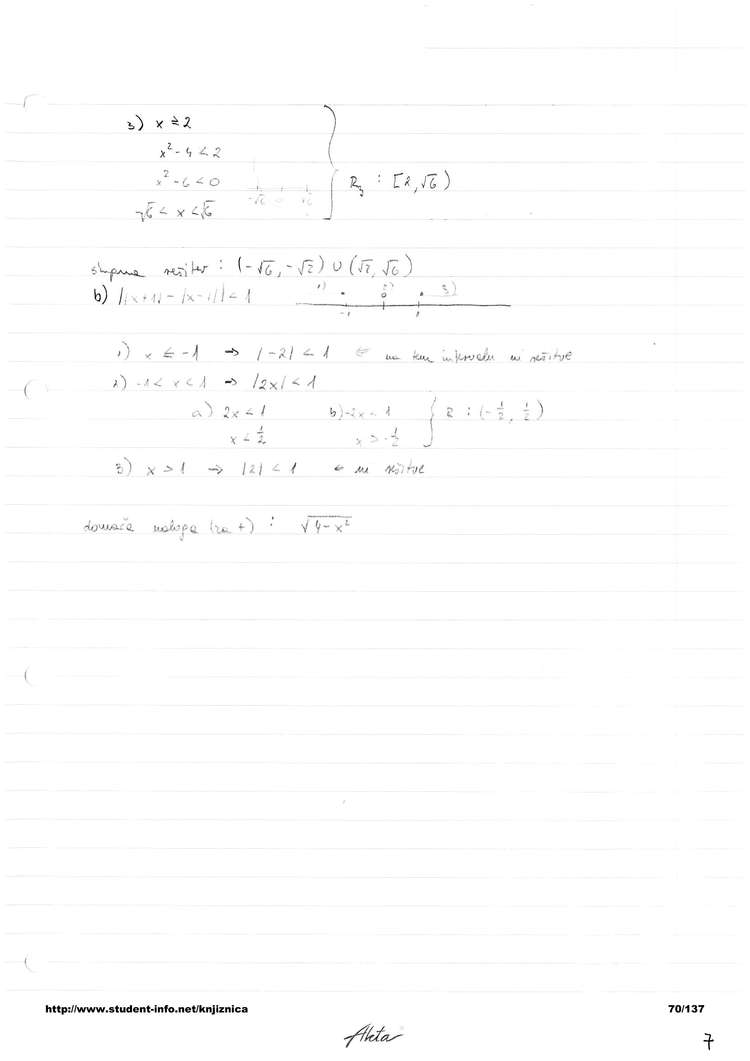 3) x ≥ 2
x² - 4 < 2
x² - 6 < 0
-√6 < x < √6
-√6 0 √6
R₃ : [2, √6)
skupna rešitev : (-√6, -√2) ∪ (√2, √6)
b) ||x+1| - |x-1|| < 1
1) 2) 3)
-1 0 1
1) x ≤ -1 → |-2| < 1 ← na tem intervalu ni rešitve
2) -1 < x < 1 → |2x| < 1
a) 2x < 1 b) -2x < 1 R : (-1/2, 1/2)
x < 1/2 x > -1/2
3) x > 1 → |2| < 1 ← ni rešitve
domača naloga (za +) : √(4-x²)
http://www.student-info.net/knjiznica 70/137
7